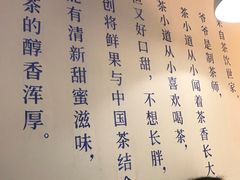 来自茶饮世家，
爷爷是制茶师，
茶小道从小闻着茶香长大
茶小道从小喜欢喝茶，
又好口甜，不想长胖，
创将鲜果与中国茶结合
有清新甜蜜滋味，
茶的醇香浑厚。